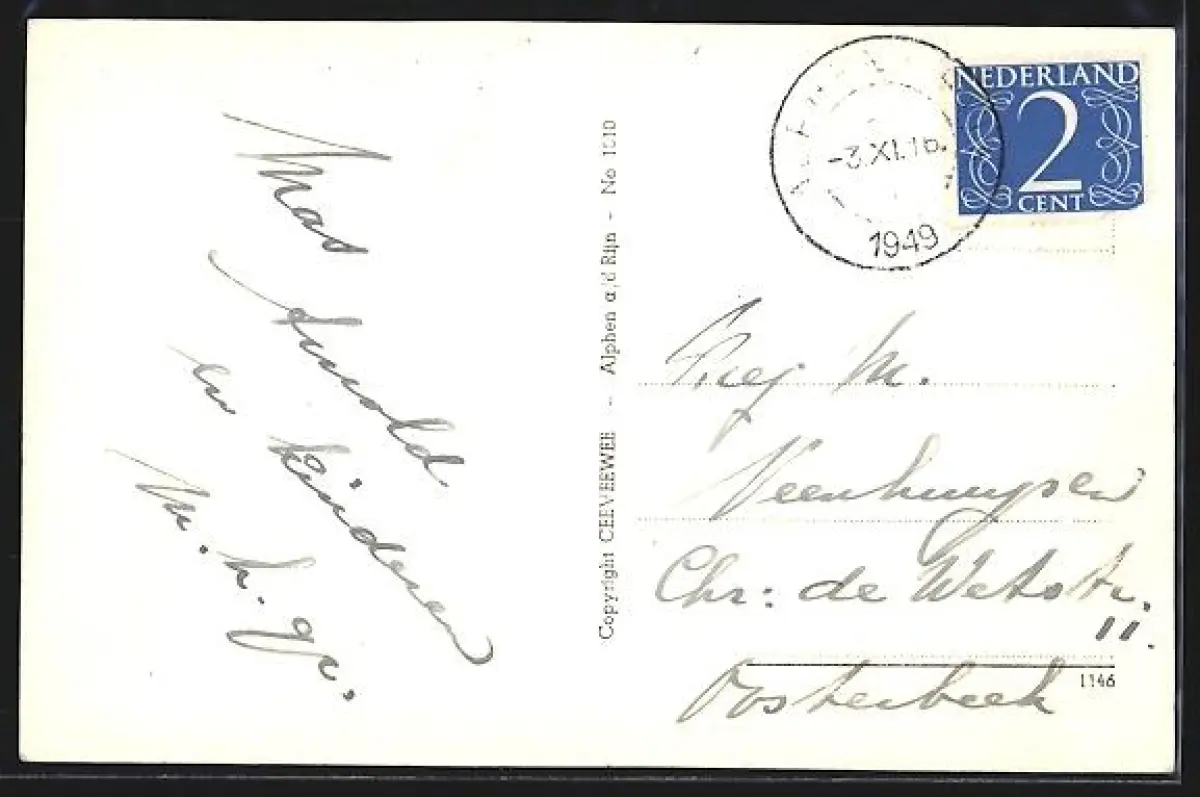 Mas
Arnold
en Kinderen
M. h. gr.
Copyright CEEVEEWEE - Alphen a/d Rijn - No 1010
XI.16
1949
NEDERLAND
2
CENT
M.
Veenhuysen
Chr: de Wetstr.
11.
Oosterbeek
1146